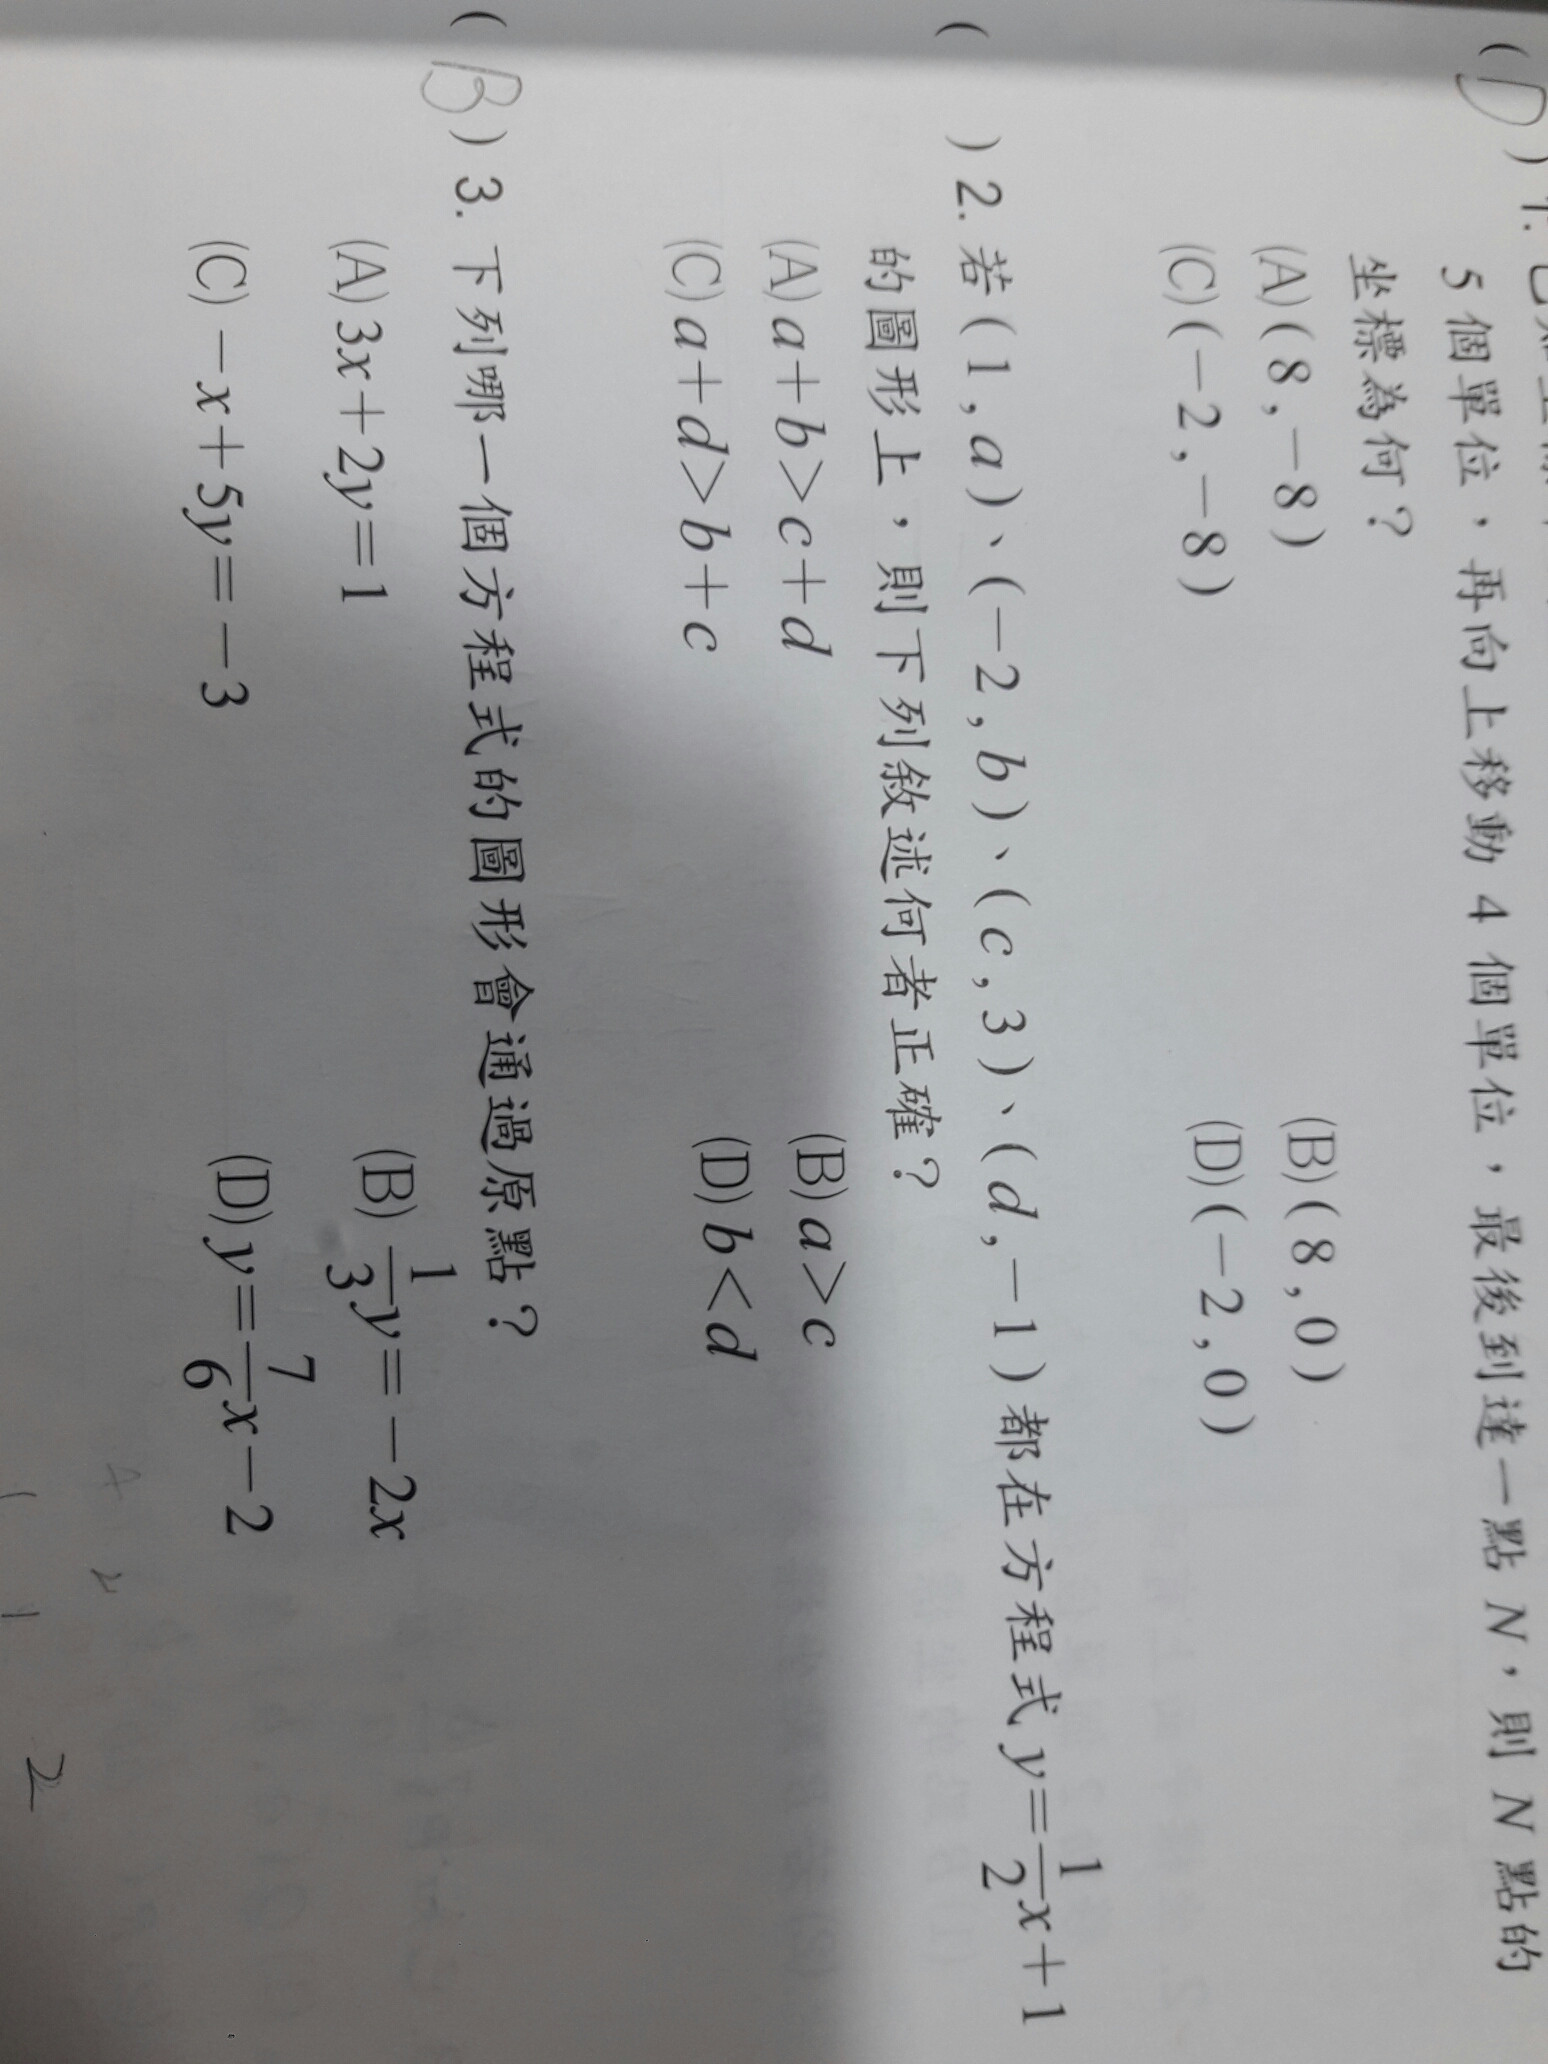 (D) 1. 已知
5 個單位,再向上移動 4 個單位,最後到達一點 N,則 N 點的
坐標為何?
(A)(8,-8) (B)(8,0)
(C)(-2,-8) (D)(-2,0)
( ) 2. 若(1,a)、(-2,b)、(c,3)、(d,-1)都在方程式 y=1/2x+1
的圖形上,則下列敘述何者正確?
(A)a+b>c+d (B)a>c
(C)a+d>b+c (D)b<d
(B) 3. 下列哪一個方程式的圖形會通過原點?
(A)3x+2y=1 (B)1/3y=-2x
(C)-x+5y=-3 (D)y=7/6x-2
2
(